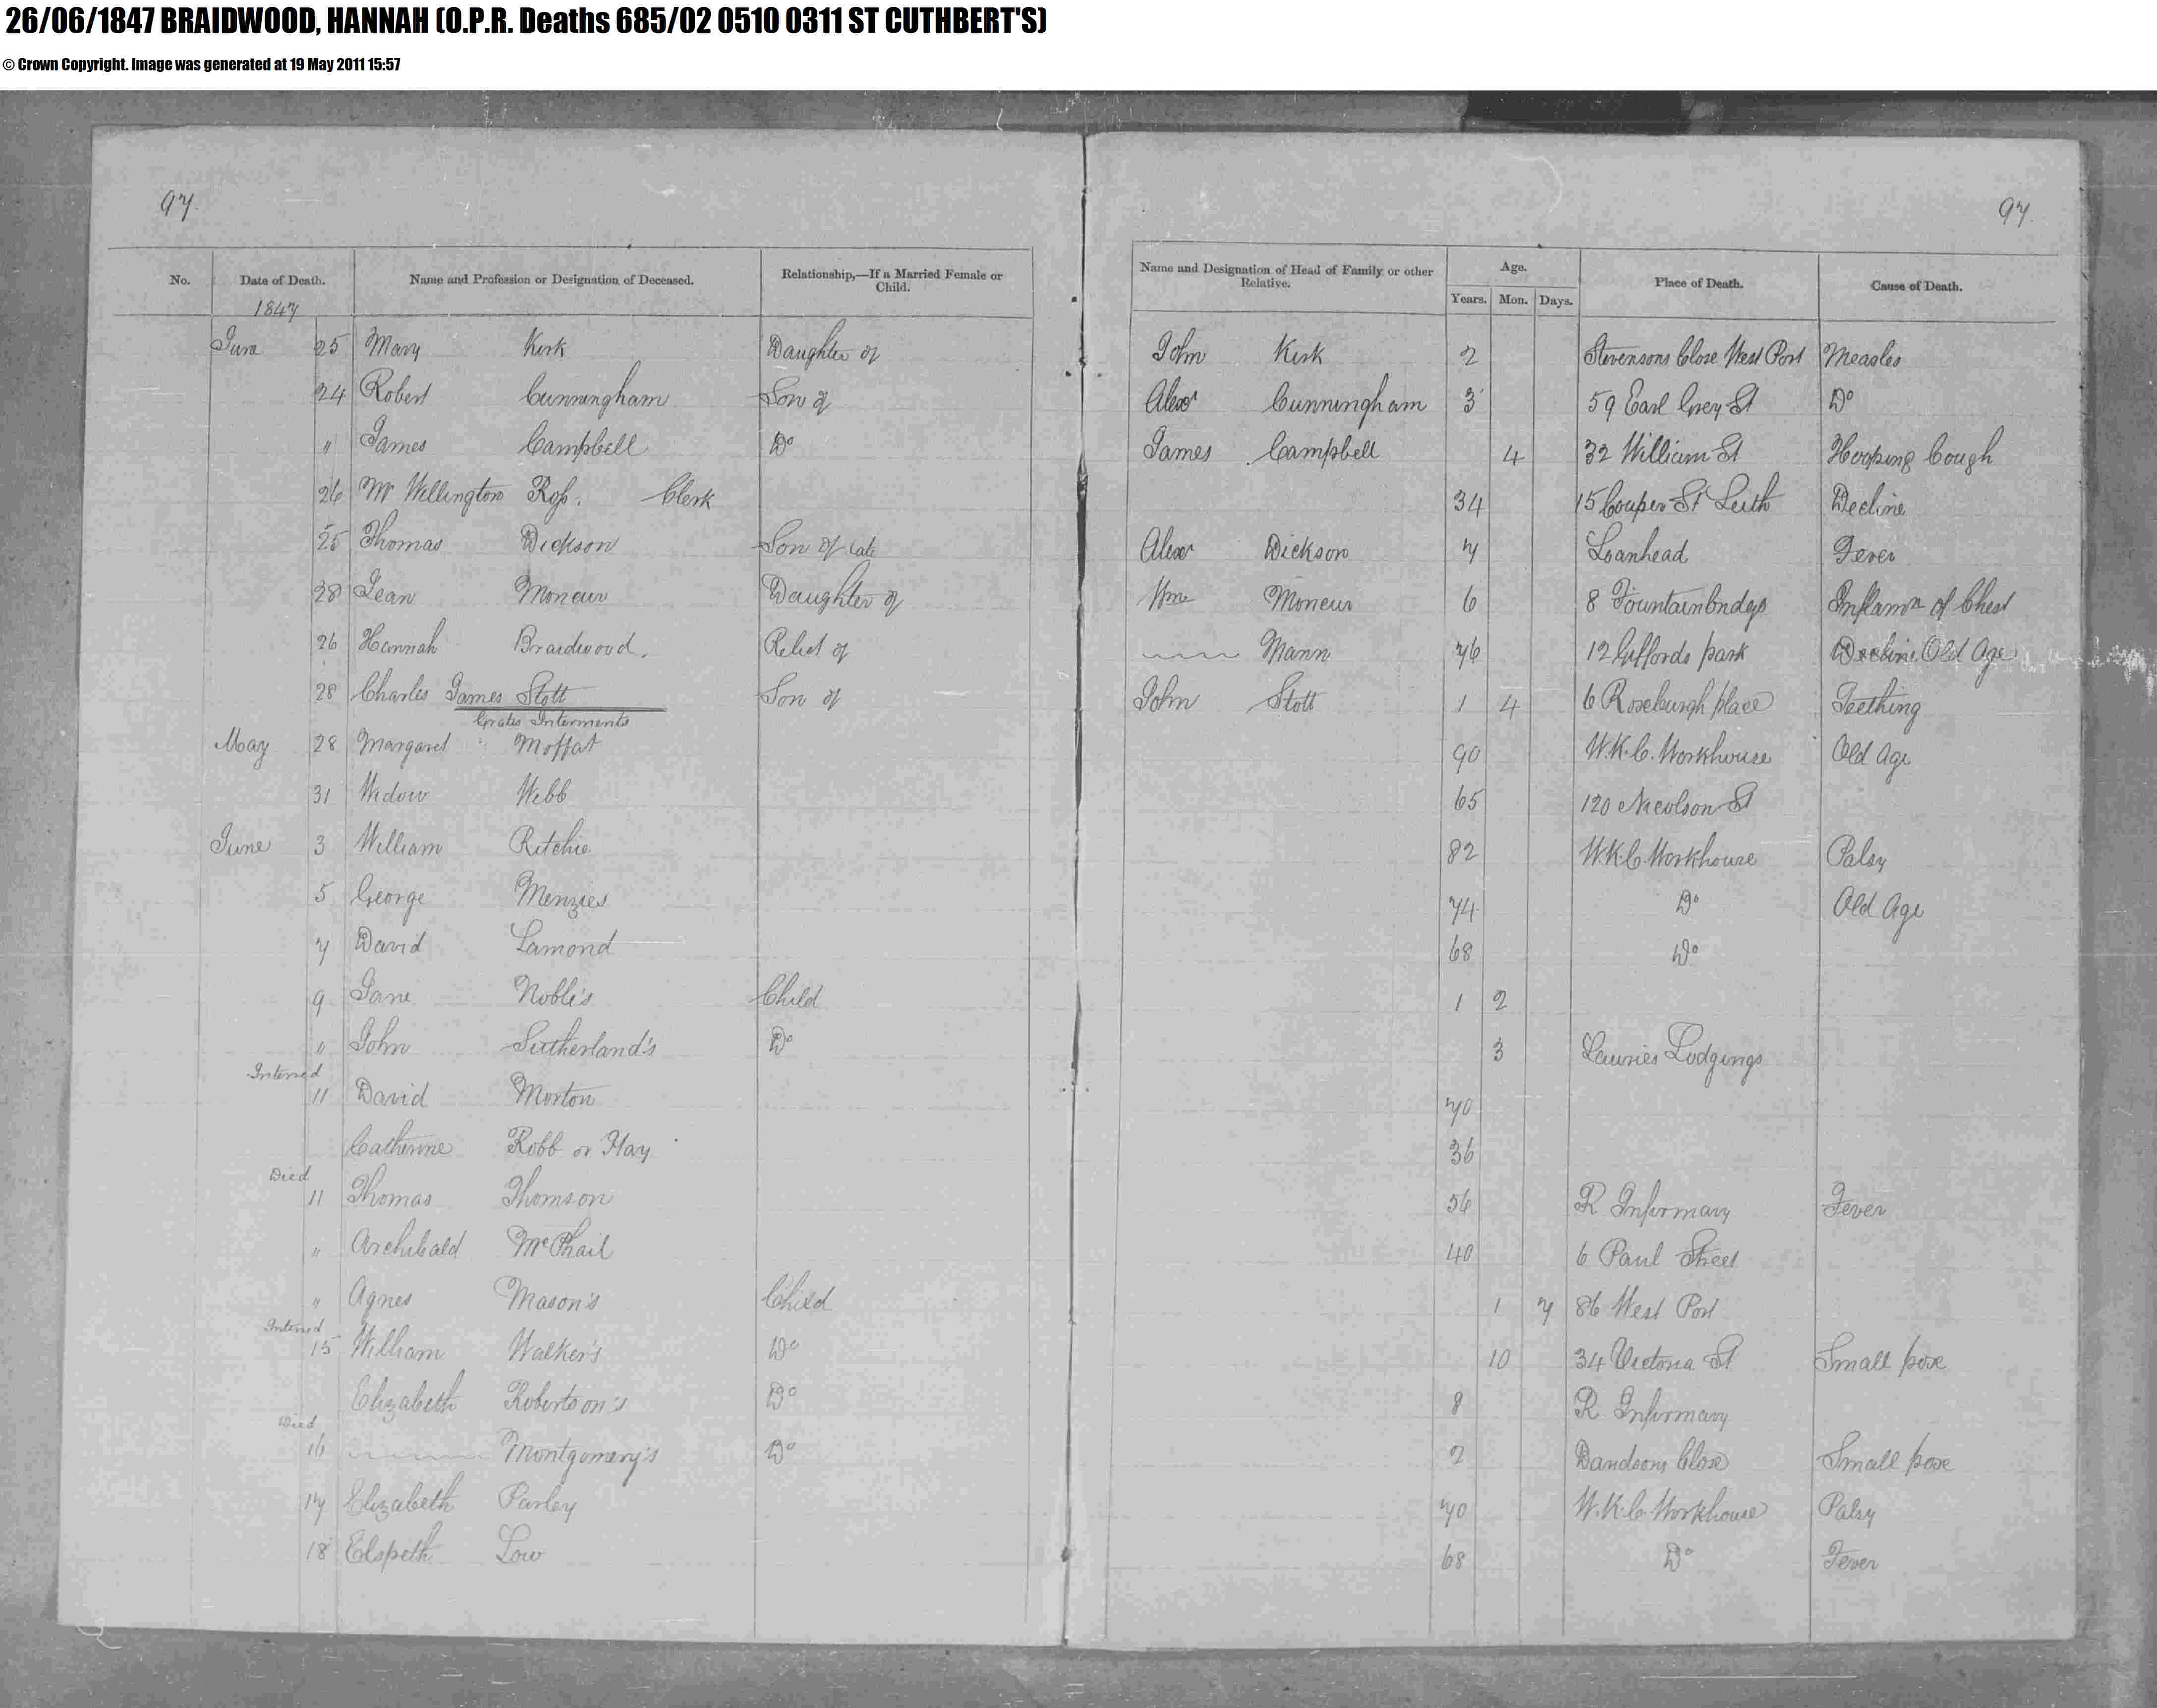 26/06/1847 BRAIDWOOD, HANNAH (O.P.R. Deaths 685/02 0510 0311 ST CUTHBERT'S)
© Crown Copyright. Image was generated at 19 May 2011 15:57
97. 97.
No. Date of Death. Name and Profession or Designation of Deceased. Relationship,—If a Married Female or Child. Name and Designation of Head of Family or other Relative. Age. Years. Mon. Days. Place of Death. Cause of Death.
1847
June 25 Mary Kirk Daughter of John Kirk 2 Stevensons Close West Port Measles
24 Robert Cunningham Son of Alexr Cunningham 3 59 Earl Grey St Do
" James Campbell Do James Campbell 4 32 William St Hooping Cough
26 Mr Wellington Ross. Clerk 34 15 Couper St Leith Decline
25 Thomas Dickson Son of late Alexr Dickson 7 Loanhead Fever
28 Jean Moncur Daughter of Wm Moncur 6 8 Fountainbridge Inflamn of Chest
26 Hannah Braidwood. Relict of Mann 76 12 Giffords park Decline Old Age
28 Charles James Stott Son of John Stott 1 4 6 Roseburgh place Teething
Gratis Interments
May 28 Margaret Moffat 90 W.K.C. Workhouse Old Age
31 Widow Webb 65 120 Nicolson St
June 3 William Ritchie 82 W.K.C Workhouse Palsy
5 George Menzies 74 Do Old Age
7 David Lamond 68 Do
9 Jane Noble's Child 1 2
" John Sutherland's Do 3 Lauries Lodgings
Interred
11 David Morton 70
Catherine Robb or Hay 36
Died
11 Thomas Thomson 56 R Infirmary Fever
" Archibald McPhail 40 6 Paul Street
" Agnes Mason's Child 1 7 86 West Port
Interred
15 William Walker's Do 10 34 Victoria St Small pox
Elizabeth Robertson's Do 8 R Infirmary
Died
16 Montgomery's Do 2 Close Small pox
17 Elizabeth Parley 70 W.K.C Workhouse Palsy
18 Elspeth Low 68 Do Fever